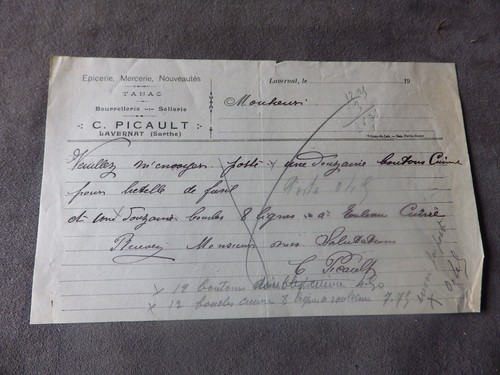 Epicerie, Mercerie, Nouveautés
TABAC
Bourrellerie Sellerie
C. PICAULT
LAVERNAT (Sarthe)
Lavernat, le 19
Monsieur
Veuillez m'envoyer poste une douzaine boutons Cuivre
pour bretelle de fusil
et une douzaine boucles 8 lignes à rouleau Cuivre
Recevez Monsieur mes Salutations
C Picault
x 12 boutons doubles cuivre 4.50
x 12 boucles cuivre 8 lignes a rouleau 7.75